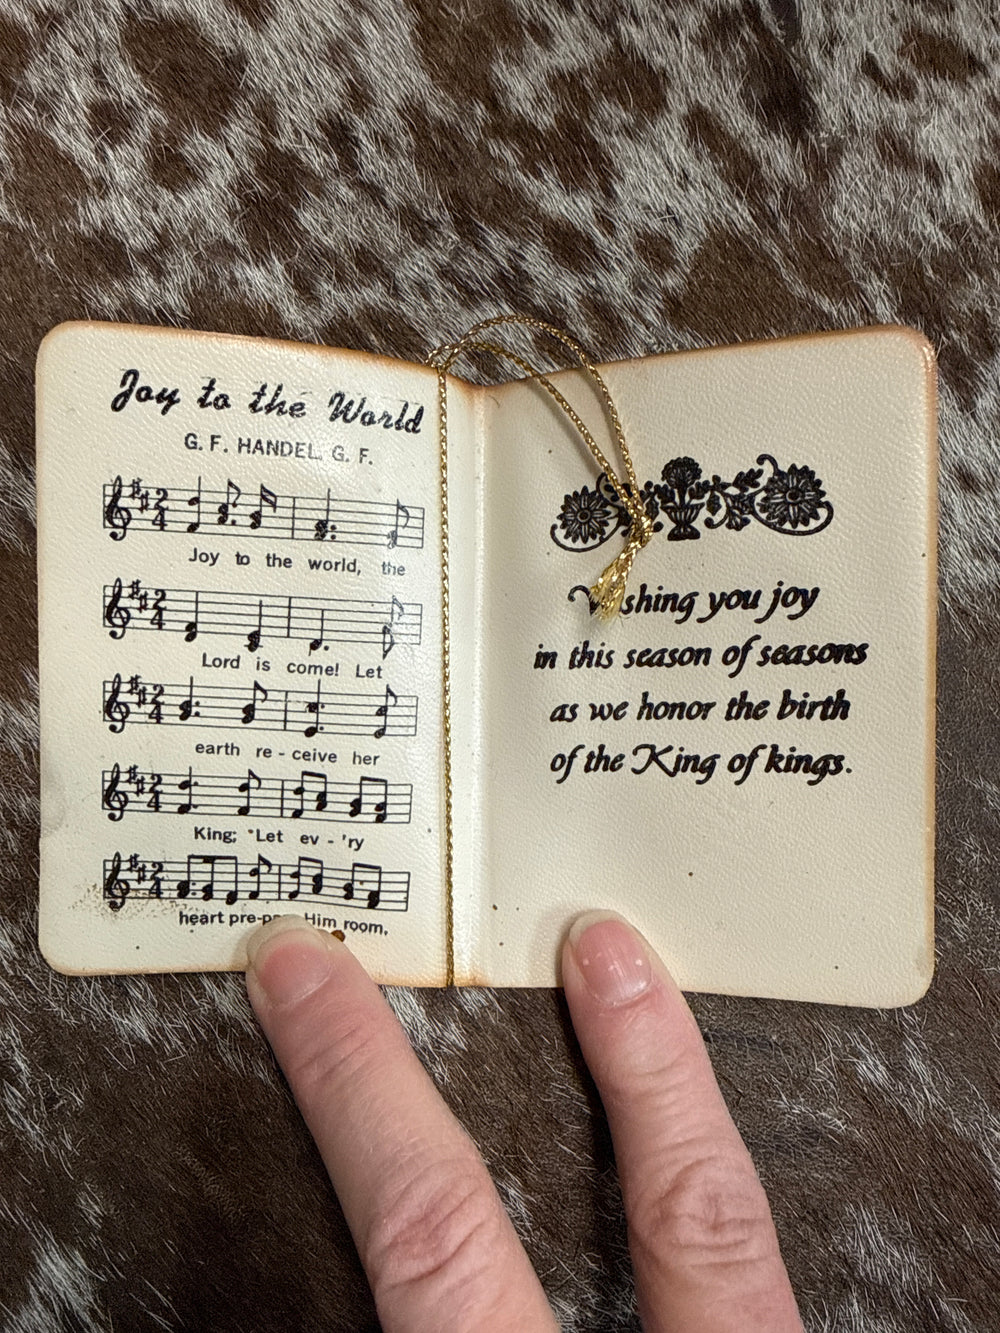 Joy to the World
G. F. HANDEL, G. F.
2 4
Joy to the world, the
2 4
Lord is come! Let
2 4
earth re - ceive her
2 4
King; Let ev - 'ry
2 4
heart Him room,
Wishing you joy
in this season of seasons
as we honor the birth
of the King of kings.